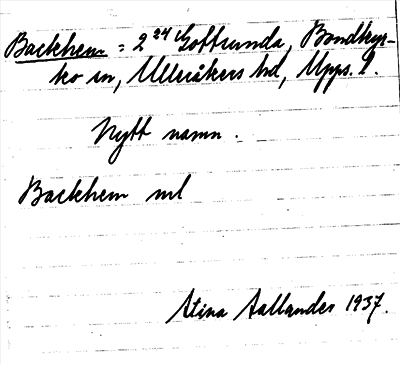 Backhem = 2²⁴ Gottsunda, Bondkyr-
ko sn, Ulleråkers hd, Upps. l.
Nytt namn.
Backhem ml
Stina Aallander 1937.